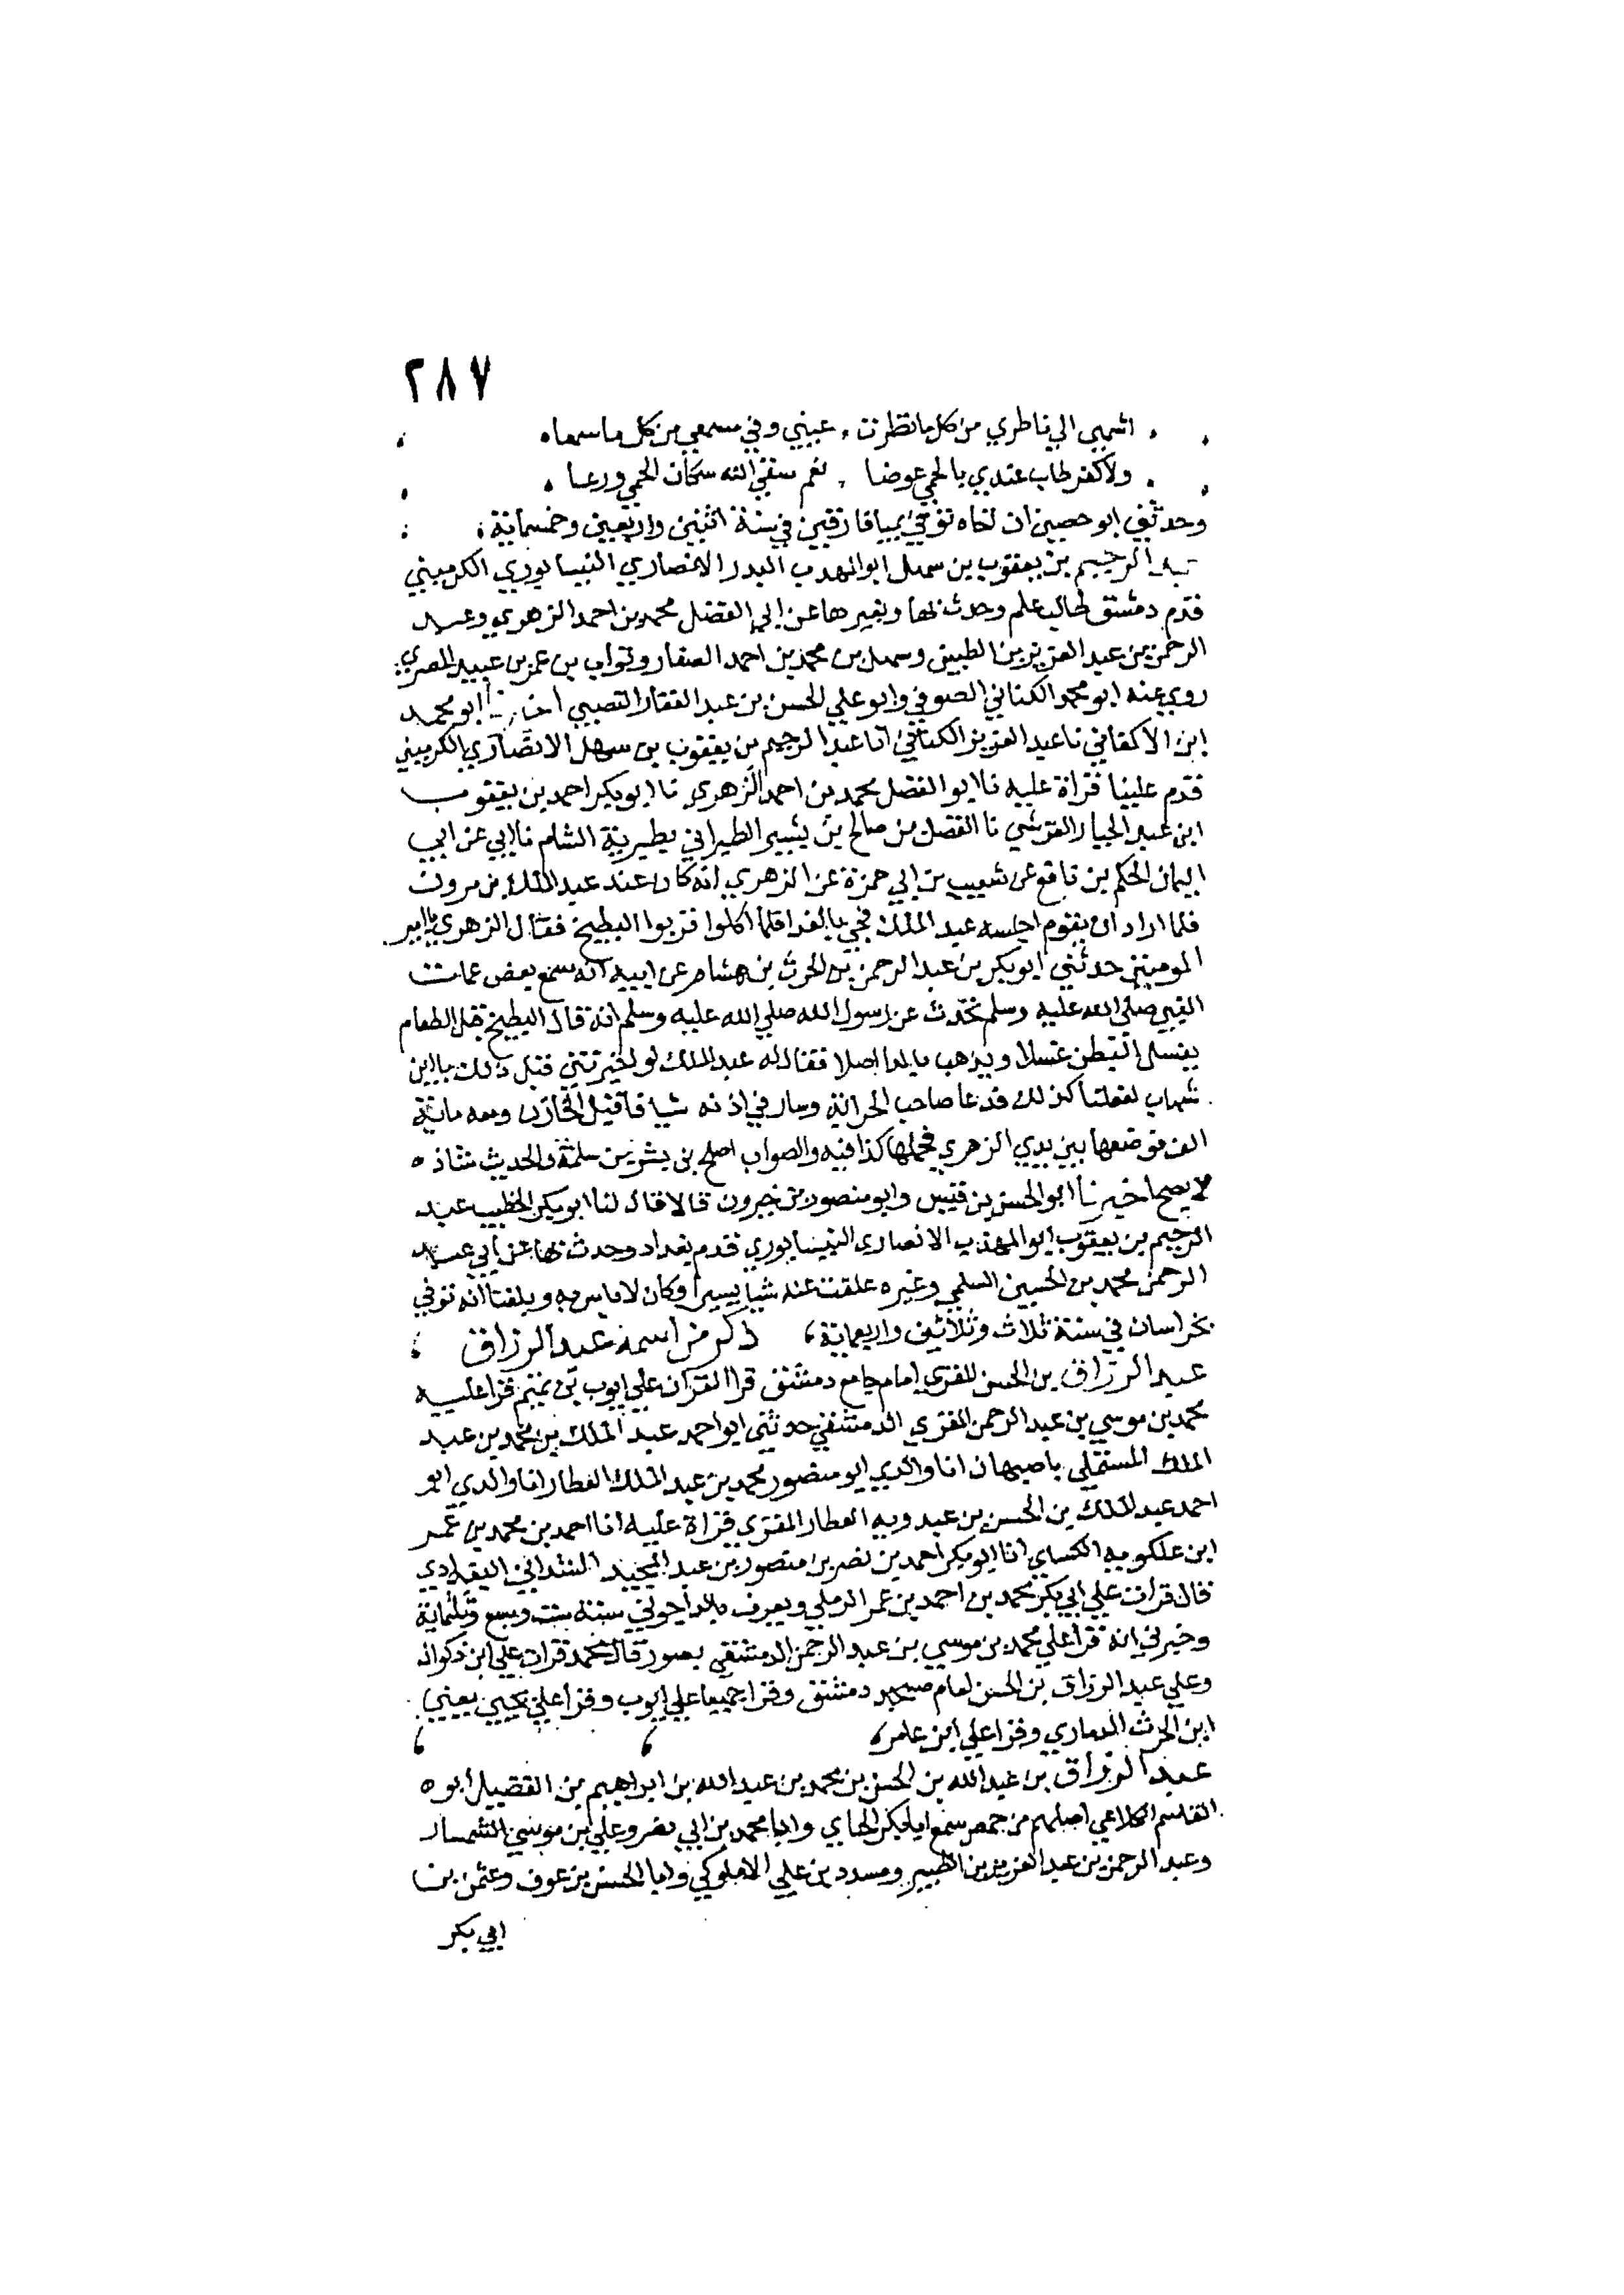 ٢٨٧
اشهى الى ناظري من كل ما نظرت . عيني وفي مسمعي من كل ما سمعا .
ولا كفر طاب عندي بالحمى عوضا . نعم سقى الله سكان الحمى ورعا .
وحدثني ابو حصين ان اخاه توفي بميافارقين في سنة اثنين واربعين وخمسمائة
عبد الرحيم بن يعقوب بن سهل ابو المهذب البدر الانصاري النيسابوري الكرميني
قدم دمشق طالب علم وحدث بها وبغيرها عن ابي الفضل محمد بن احمد الزهري وعبد
الرحمن بن عبد العزيز بن الطبيز وسهل بن محمد بن احمد الصفار وثواب بن عمر بن عبيد المصري
روى عنه ابو محمد الكتاني الصوفي وابو علي الحسن بن عبد الغفار النصيبي ابو محمد
ابن الاكفاني نا عبد العزيز الكتاني انا عبد الرحيم بن يعقوب بن سهل الانصاري الكرميني
قدم علينا قراة عليه نا ابو الفضل محمد بن احمد الزهري نا ابو بكر احمد بن يعقوب
ابن عبد الجبار القرشي نا الفضل بن صالح بن بشير الطبراني بطبرية الشام نا ابي عن ابي
اليمان الحكم بن نافع عن شعيب بن ابي حمزة عن الزهري انه كان عند عبد الملك بن مرون
فلما اراد ان يقوم اجلسه عبد الملك فجي بالغدا فلما اكلوا قربوا البطيخ فقال الزهري يا امير
المومنين حدثني ابو بكر بن عبد الرحمن بن الحرث بن هشام عن ابيه انه سمع بعض عمات
النبي صلى الله عليه وسلم تحدث عن رسول الله صلى الله عليه وسلم انه قال البطيخ قبل الطعام
يغسل البطن غسلا ويذهب بالدا اصلا فقال له عبد الملك لو اخبرتني قبل ذلك يا ابن
شهاب لفعلنا كذلك فدعا صاحب الخزانة وسار في اذنه شيا فاقبل الخازن ومعه مائة
الف فوضعها بين يدي الزهري فحملها كذا فيه والصواب اصلح بن بشر بن سلمة والحديث شاذ ه
لا يصح اخبرنا ابو الحسن بن قبيس وابو منصور بن خيرون قالا قال لنا ابو بكر الخطيب عبد
الرحيم بن يعقوب ابو المهذب الانصاري النيسابوري قدم بغداد وحدث بها عن ابي عبد
الرحمن محمد بن الحسين السلمي وغيره علقت عنه شيا يسيرا وكان لا باس به وبلغنا انه توفي
بخراسان في سنة ثلاث وثلاثين واربعمائة ، ذكر من اسمه عبد الرزاق ،
عبد الرزاق بن الحسن المقري امام جامع دمشق قرا القران على ايوب بن تميم قرا عليه
محمد بن موسى بن عبد الرحمن المقري الدمشقي حدثني ابو احمد عبد الملك بن محمد بن عبد
الملك المستملي باصبهان انا والدي ابو منصور محمد بن عبد الملك العطار انا والدي ابو
احمد عبد الملك بن الحسن بن عبدويه العطار المقري قراة عليه انا احمد بن محمد بن عمر
ابن علكويه الكساي انا ابو بكر احمد بن نصر بن منصور بن عبد المجيد الشذائي البغدادي
قال قرات على ابي بكر محمد بن احمد بن عمر الرملي ويعرف بالداجوني سنة ست وسبع وثلثماية
وخبرني انه قرا على محمد بن موسى بن عبد الرحمن الدمشقي بصور قال محمد قرات على ابن ذكوان
وعلى عبد الرزاق بن الحسن امام مسجد دمشق وقرا جميعا على ايوب وقرا على يحيى يعني
ابن الحرث الذماري وقرا على ابن عامر ،
عبد الرزاق بن عبد الله بن الحسن بن محمد بن عبد الله بن ابراهيم بن الفضيل ابو ه
القاسم الكلاعي اصلهم من حمص سمع ابا بكر الحاي وابا محمد بن ابي نصر وعلي بن موسى السمسار
وعبد الرحمن بن عبد العزيز بن الطبيز ومسدد بن علي الاملوكي وابا الحسن بن عوف وعثمن بن
ابي بكر